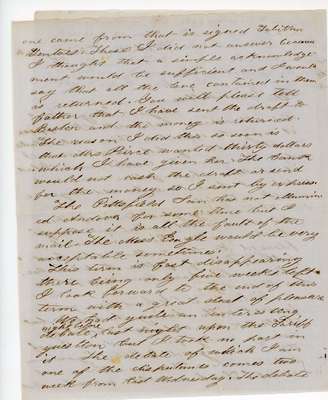 one came from that is signed Tabitha
These I did not answer because
I thought that a simple acknowledge-
ment would be sufficient and I would
say that all the love contained in them
is returned. You will please tell
Father that I have sent the draft to
Boston and the money is returned.
The reason I did this so soon is
that Mrs Pierce wanted thirty dollars
which I have given her. The bank
would not cash the draft or send
for the money so I sent by express.
The Pittsfield Sun has not
ed Andover for some time but I
suppose it is all the fault of the
mail. The Mass Eagle would be very
acceptable sometimes.
This term is fast disappearing
there being only five weeks left
I look forward to the end of this
term with a great deal of pleasure
We had quite an interesting
night before
debate last night upon the Tariff
question but I took no part in
it. The debate of which I am
one of the disputants comes two
week from last Wednesday. The debate